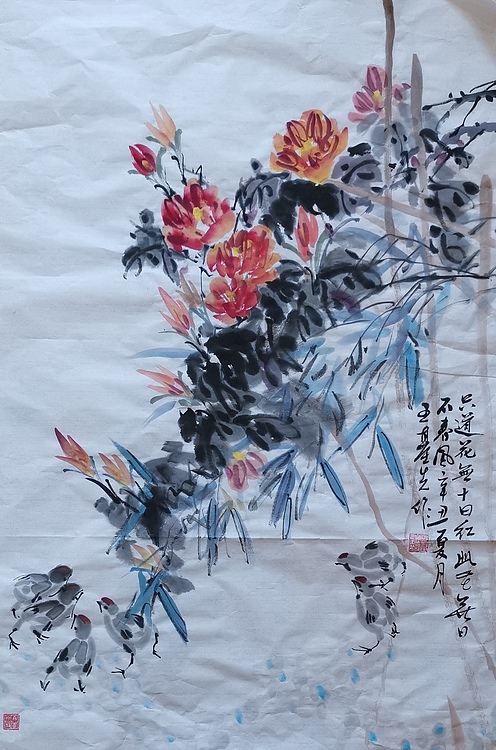 只道花無十日紅此花無日
不春風辛丑夏月
王基先作